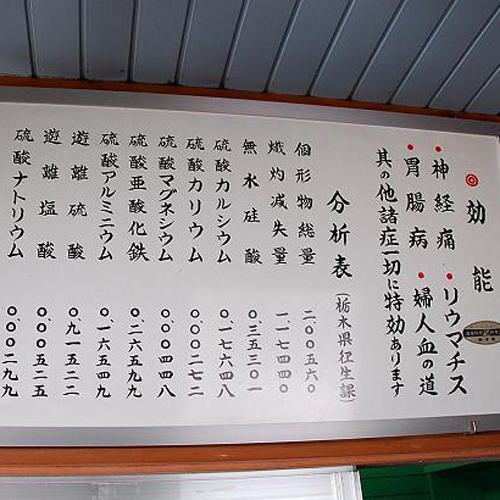 ◎効能
・神経痛 ・リウマチス
・胃腸病 ・婦人血の道
其の他諸症一切に特効あります
分析表(栃木県衛生課)
個形物総量 二、〇〇五六〇
熾灼減失量 一、一七四四〇
無水硅酸 〇、三五三〇一
硫酸カルシウム 〇、一七六四八
硫酸カリウム 〇、〇〇二七二
硫酸マグネシウム 〇、〇〇四四八
硫酸亜酸化鉄 〇、二六五七九
硫酸アルミニウム 〇、一六五四九
遊離硫酸 〇、九一五二二
遊離塩酸 〇、〇〇五二五
硫酸ナトリウム 〇、〇〇二九九